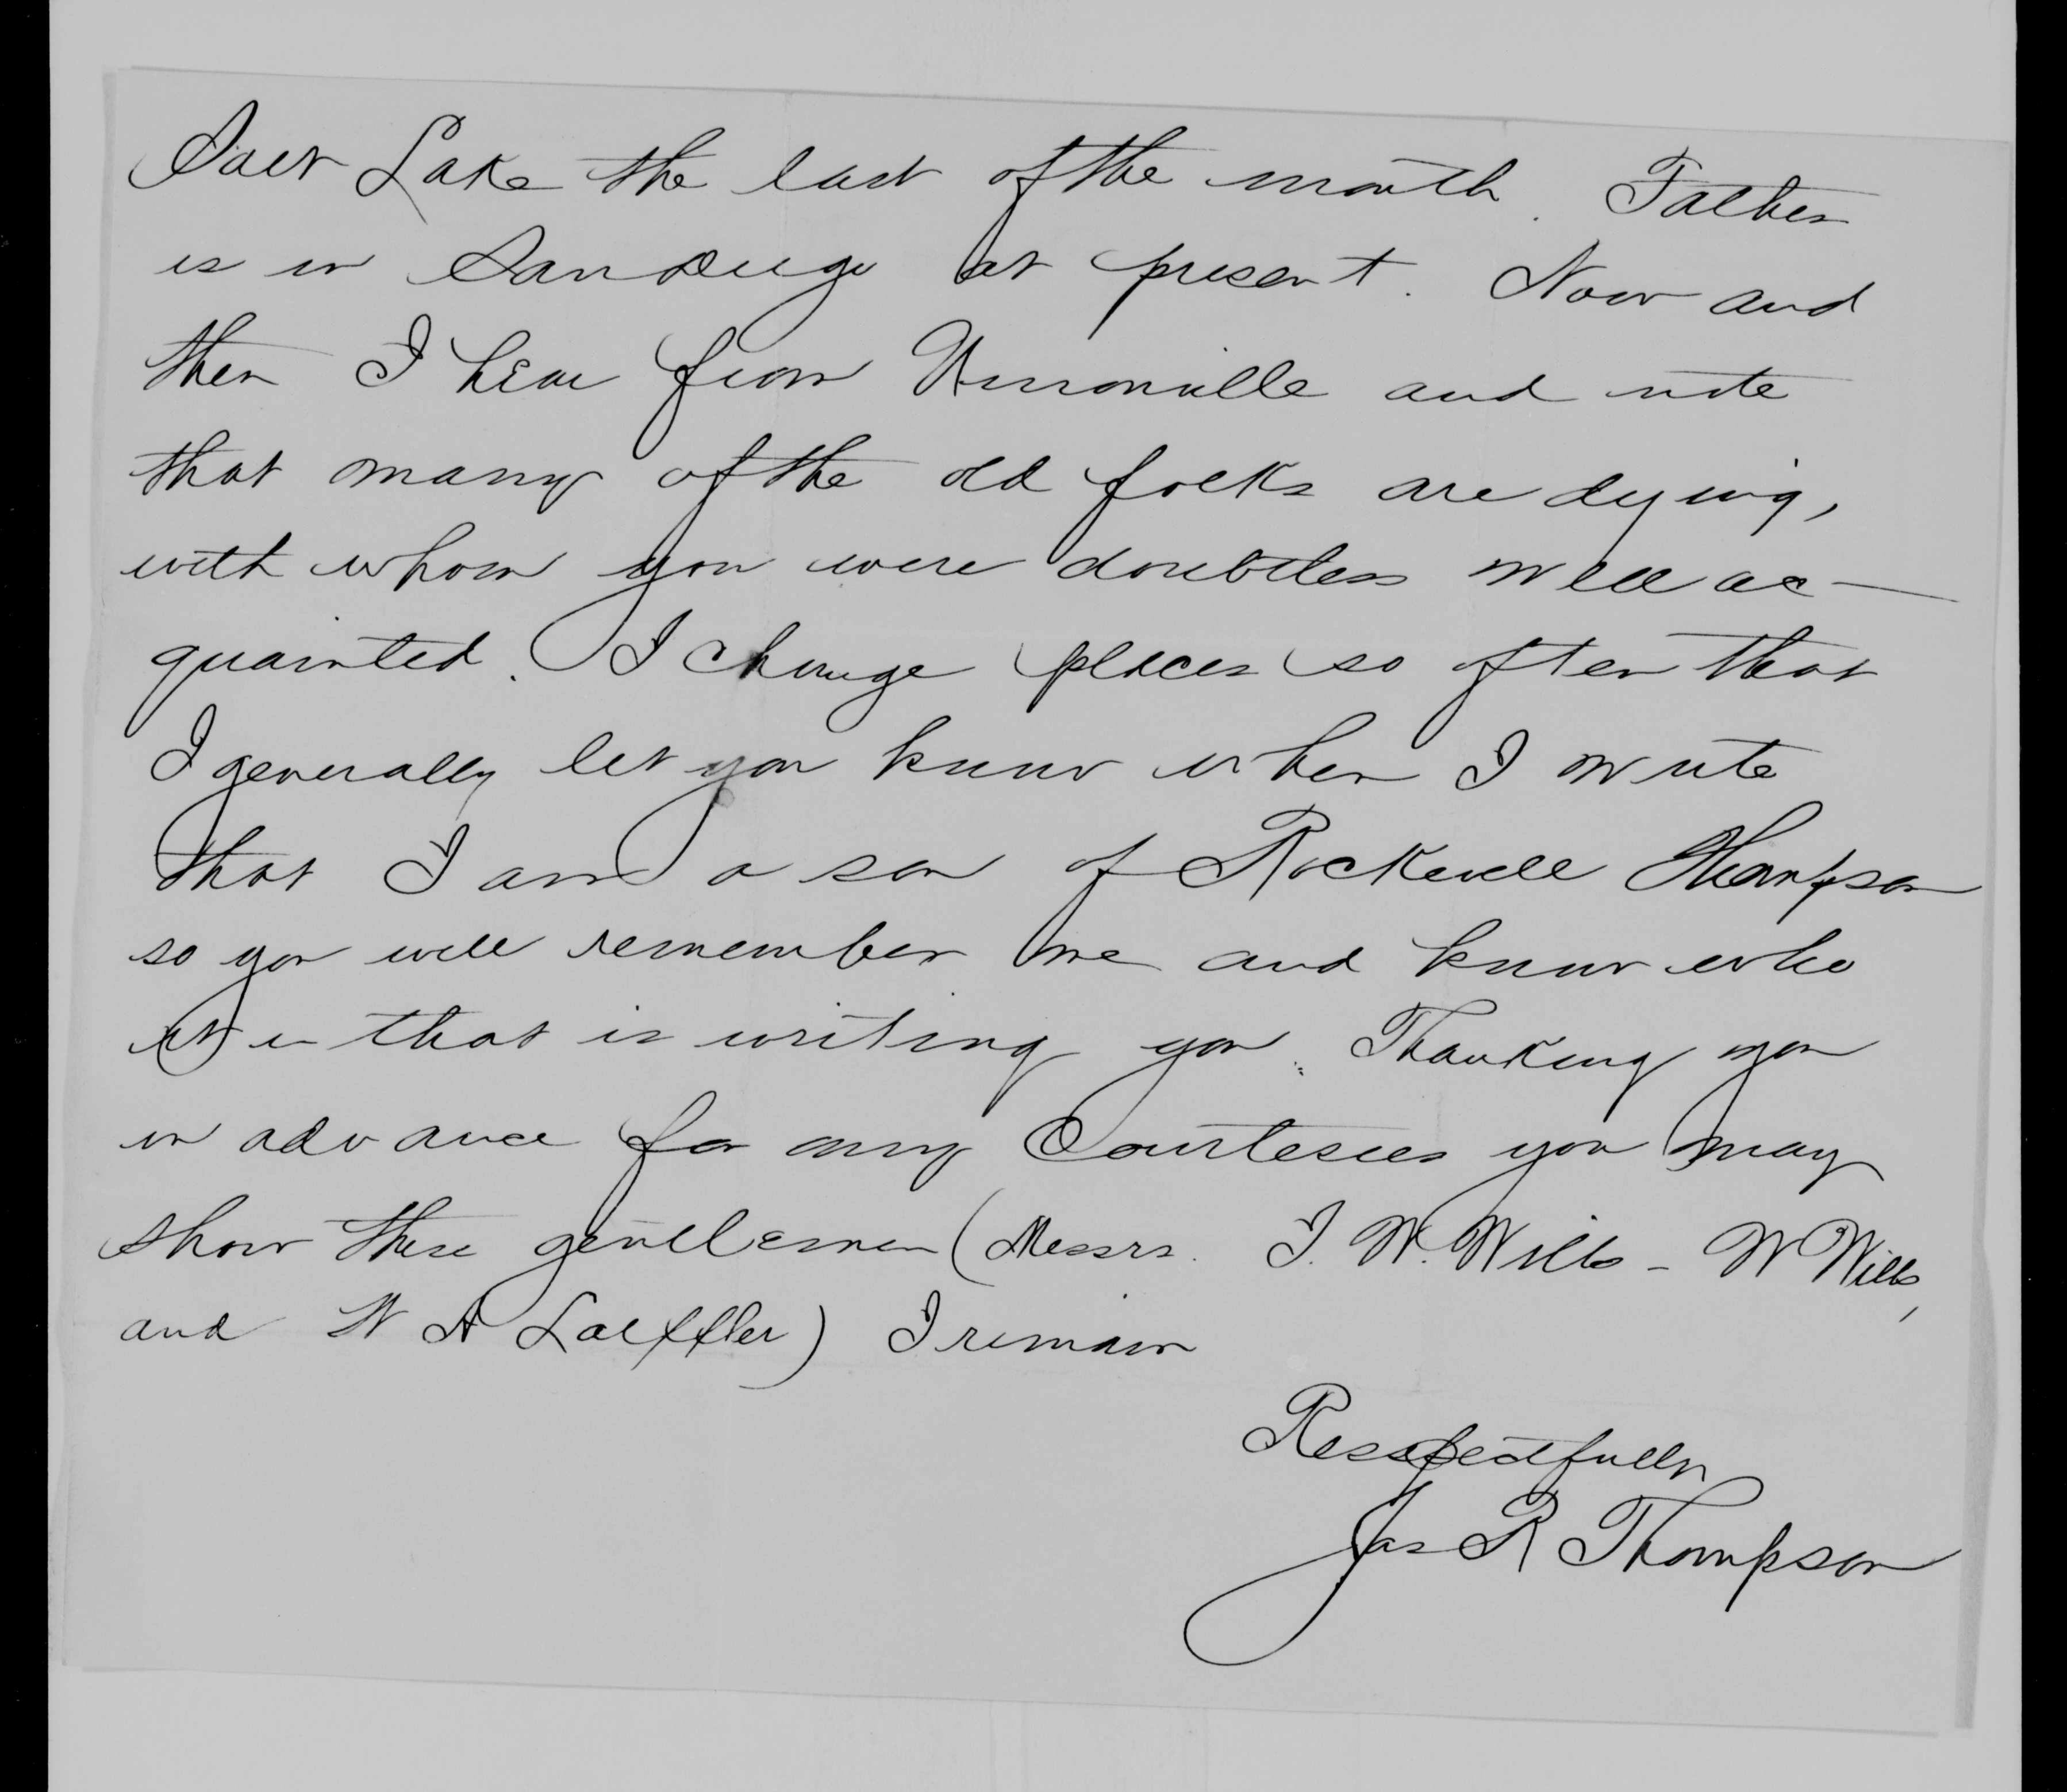 Salt Lake the last of the month. Father
is in San Diego at present. Now and
then I hear from Unionville and note
that many of the old folks are dying,
with whom you were doubtless well ac-
quainted. I change places so often that
I generally let you know when I write
that I am a son of Rockwell Thompson
so you will remember me and know who
it is that is writing you. Thanking you
in advance for any Courtesies you may
show these gentlemen (Messrs. I. W. Wills - W Wills,
and W A Laeffler) I remain
Respectfully
Jas R Thompson